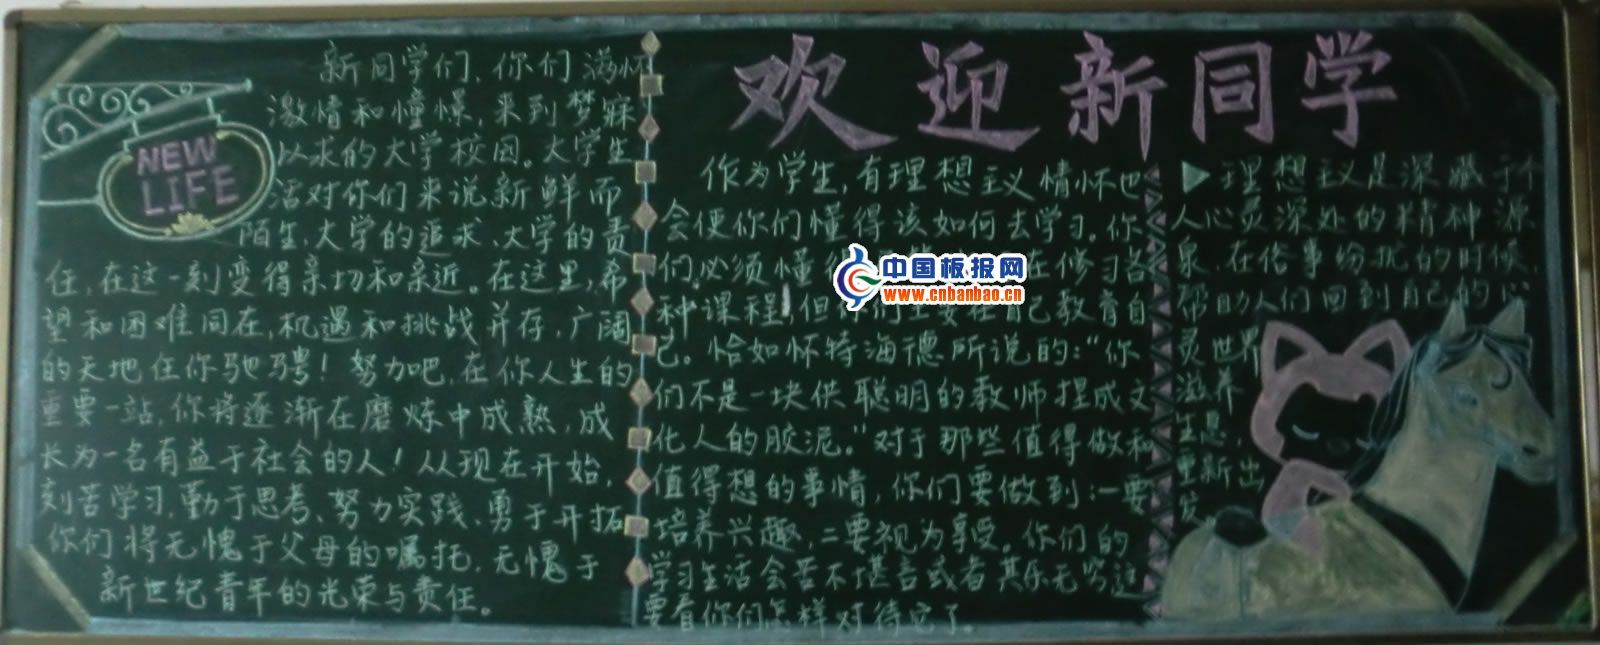 欢迎新同学
NEW
LIFE
新同学们，你们满怀
激情和憧憬，来到梦寐
以求的大学校园。大学生
活对你们来说新鲜而
陌生，大学的追求、大学的责
任，在这一刻变得亲切和亲近。在这里，希
望和困难同在，机遇和挑战并存，广阔
的天地任你驰骋！努力吧，在你人生的
重要一站，你将逐渐在磨炼中成熟，成
长为一名有益于社会的人！从现在开始，
刻苦学习，勤于思考、努力实践、勇于开拓
你们将无愧于父母的嘱托，无愧于
新世纪青年的光荣与责任。
作为学生，有理想主义情怀也
会使你们懂得该如何去学习。你
们必须懂得 在修习各
种课程，但你们主要在自己教育自
己。恰如怀特海德所说的：“你
们不是一块供聪明的教师捏成文
化人的胶泥。”对于那些值得做和
值得想的事情，你们要做到：一要
培养兴趣，二要视为享受。你们的
学习生活会苦不堪言或者其乐无穷这
要看你们怎样对待它了。
理想主义是深藏于个
人心灵深处的精神源
泉，在俗事纷扰的时候，
帮助人们回到自己的心
灵世界
滋养
生息，
重新出
发
中国板报网
www.cnbanbao.cn